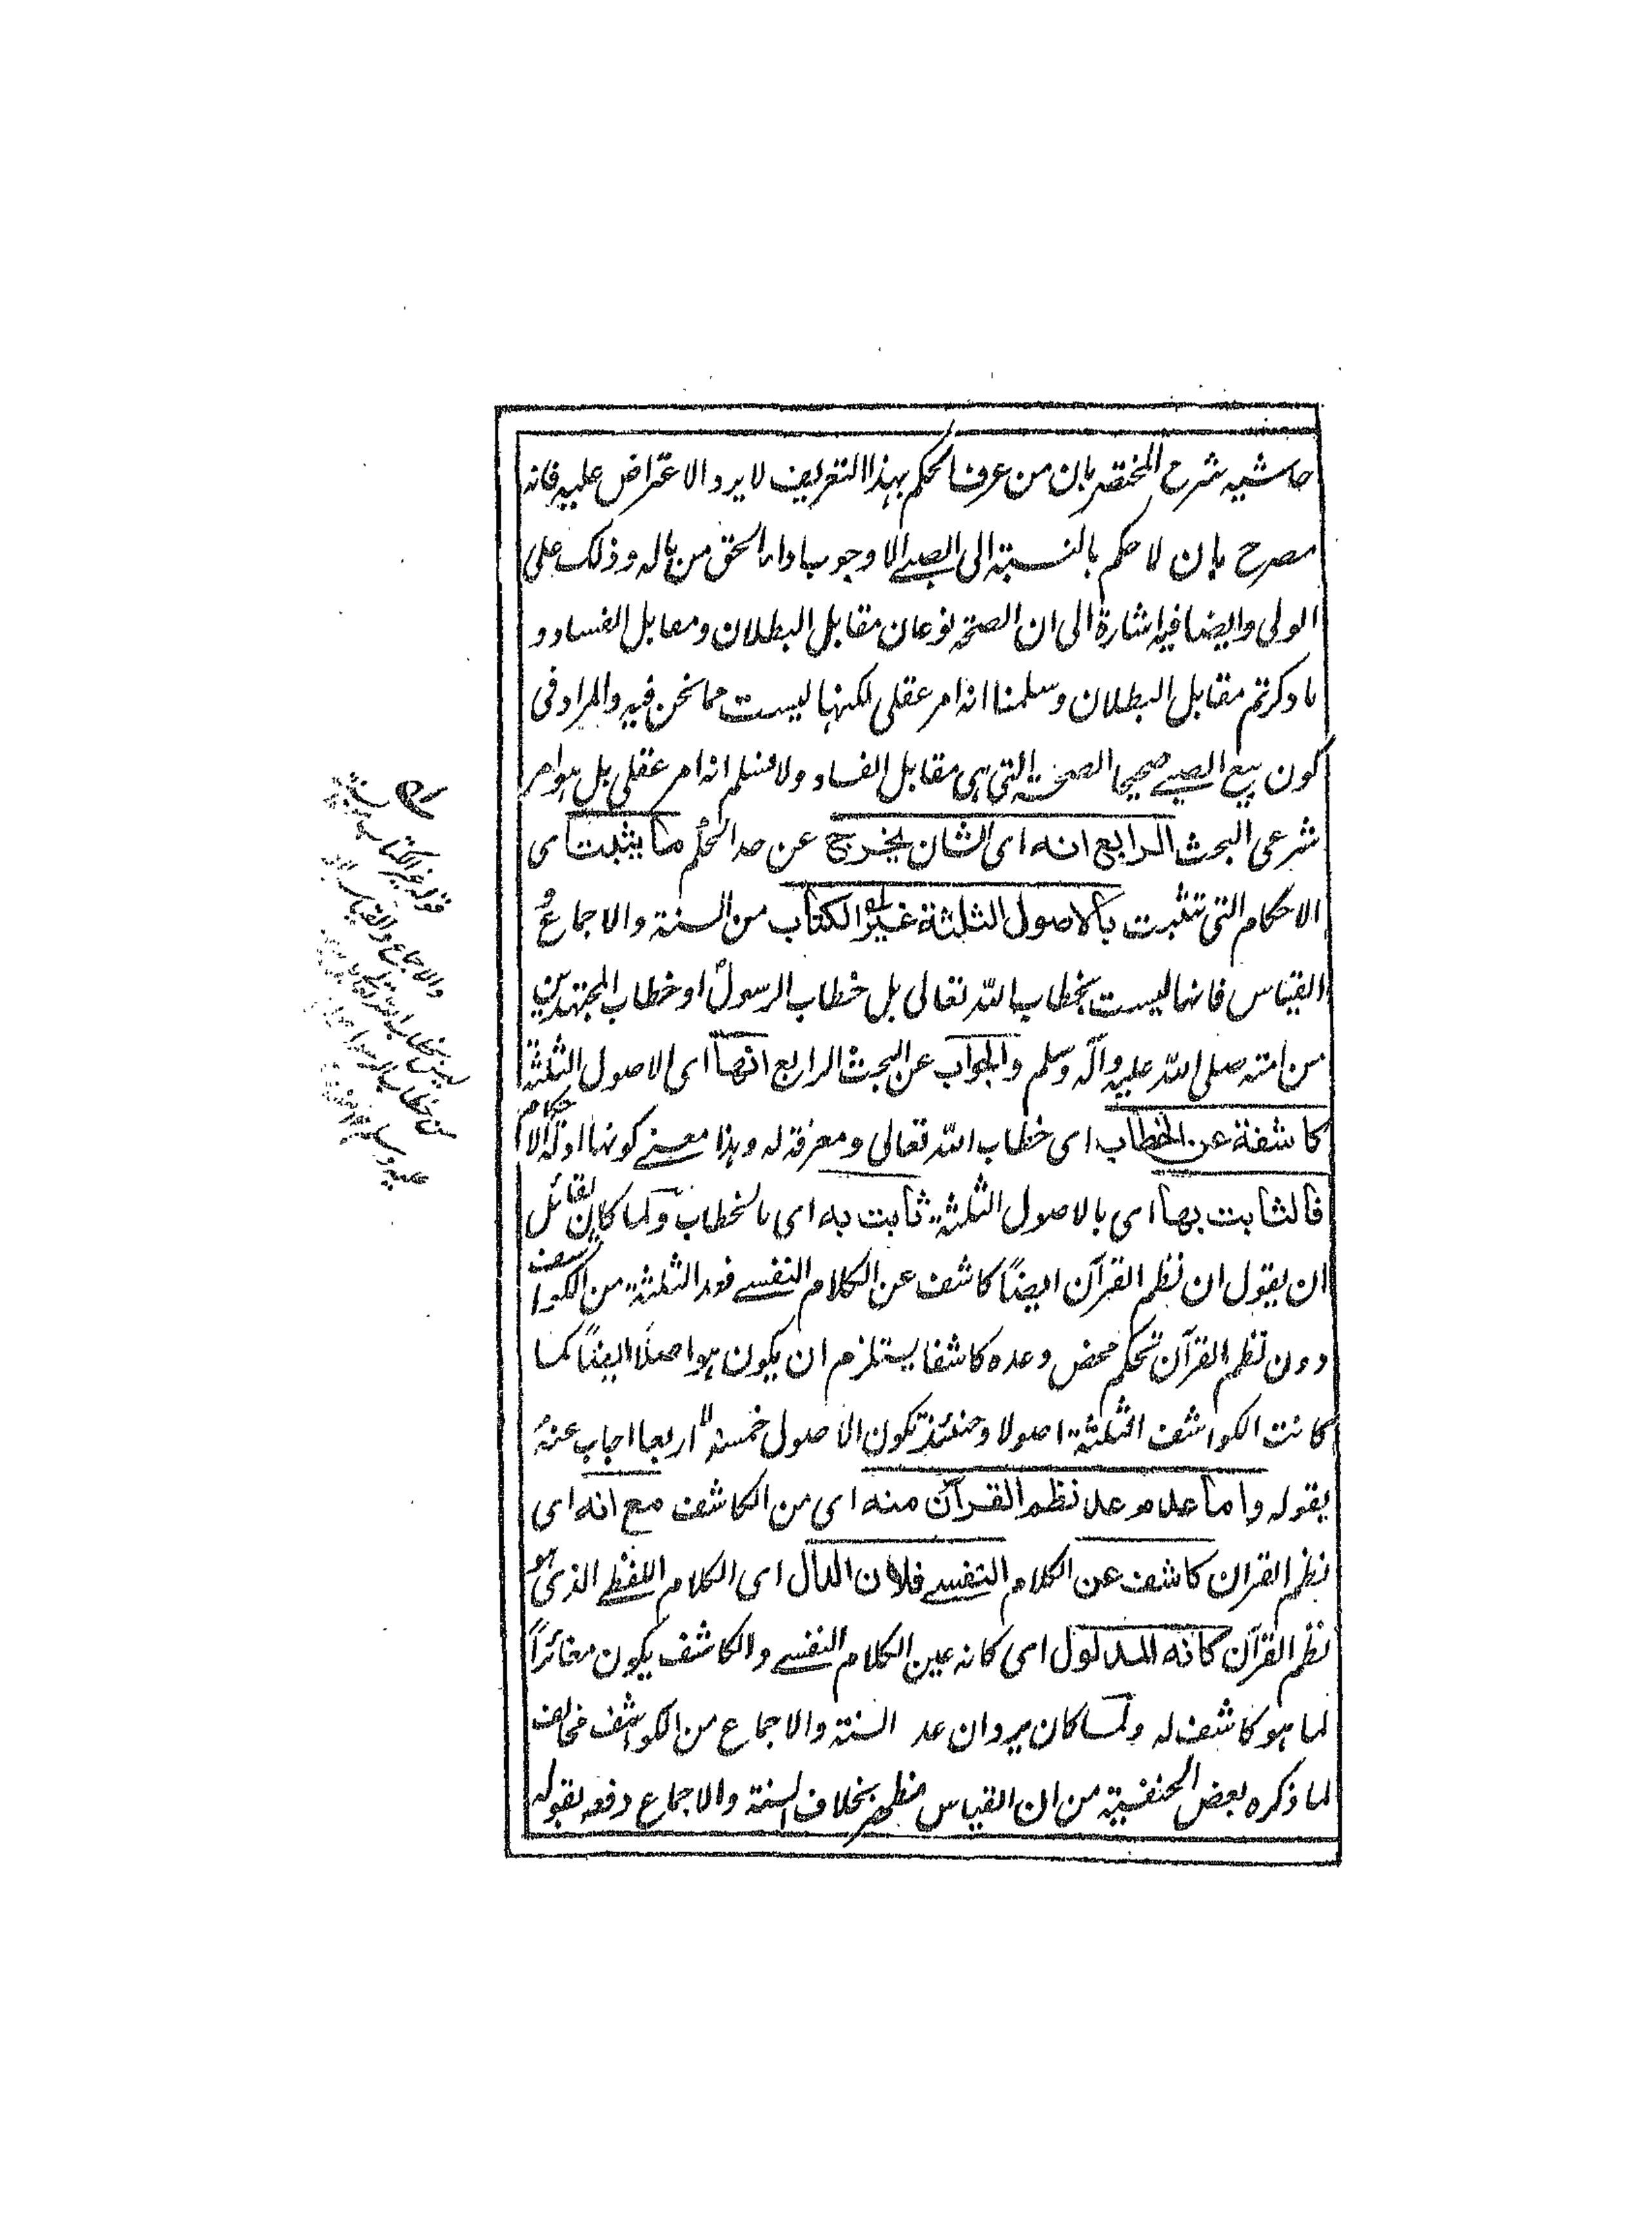 حاشيه شرح المختصر بان من عرف الحكم بهذا التعريف لا يرد الاعتراض عليه فانه
مصرح بان لا حكم بالنسبة الى الصبى الا وجوب اداء الحق من ماله وذلك على
الولى وايضا فيه اشارة الى ان الصحة نوعان مقابل البطلان ومقابل الفساد و
ما ذكرتم مقابل البطلان وسلمنا انه امر عقلى لكنها ليست مما نحن فيه والمراد فى
كون بيع الصبى صحيحا الصحة التى هى مقابل الفساد ولا نسلم انه امر عقلى بل هو امر
شرعى البحث الرابع انه اى الشان يخرج عن حد الحكم ما يثبت اى
الاحكام التى تثبت بالاصول الثلثة غير الكتاب من السنة والاجماع و
القياس فانها ليست بخطاب الله تعالى بل خطاب الرسول او خطاب المجتهدين
من امته صلى الله عليه وآله وسلم والجواب عن البحث الرابع انها اى الاصول الثلثة
كاشفة عن الخطاب اى خطاب الله تعالى ومعرفة له وهذا معنى كونها ادلة الاحكام
فالثابت بها اى بالاصول الثلثة ثابت به اى بالخطاب ولما كان لقائل
ان يقول ان نظم القرآن ايضاً كاشف عن الكلام النفسى فعد الثلثة من الكواشف
دون نظم القرآن تحكم محض وعده كاشفا يستلزم ان يكون هو اصلاً ايضاً كما
كانت الكواشف الثلثة اصولا وحينئذ تكون الاصول خمسة لا اربعا اجاب عنه
بقوله واما عدم عد نظم القرآن منه اى من الكاشف مع انه اى
نظم القران كاشف عن الكلام النفسى فلان الدال اى الكلام اللفظى الذى هو
نظم القرآن كانه المدلول اى كانه عين الكلام النفسى والكاشف يكون مغائراً
لما هو كاشف له ولما كان يرد ان عد السنة والاجماع من الكواشف مخالف
لما ذكره بعض الحنفية من ان القياس مظهر بخلاف السنة والاجماع دفعه بقوله
قوله غير الكتاب
والاجماع والقياس